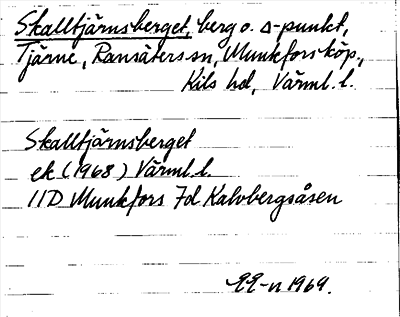 Skalltjärnsberget, berg o. ∆-punkt,
Tjärne, Ransäters sn, Munkfors köp.,
Kils hd, Värml. l.
Skalltjärnsberget
ek (1968) Värml. l.
11D Munkfors 7d Kalvbergsåsen
1969.